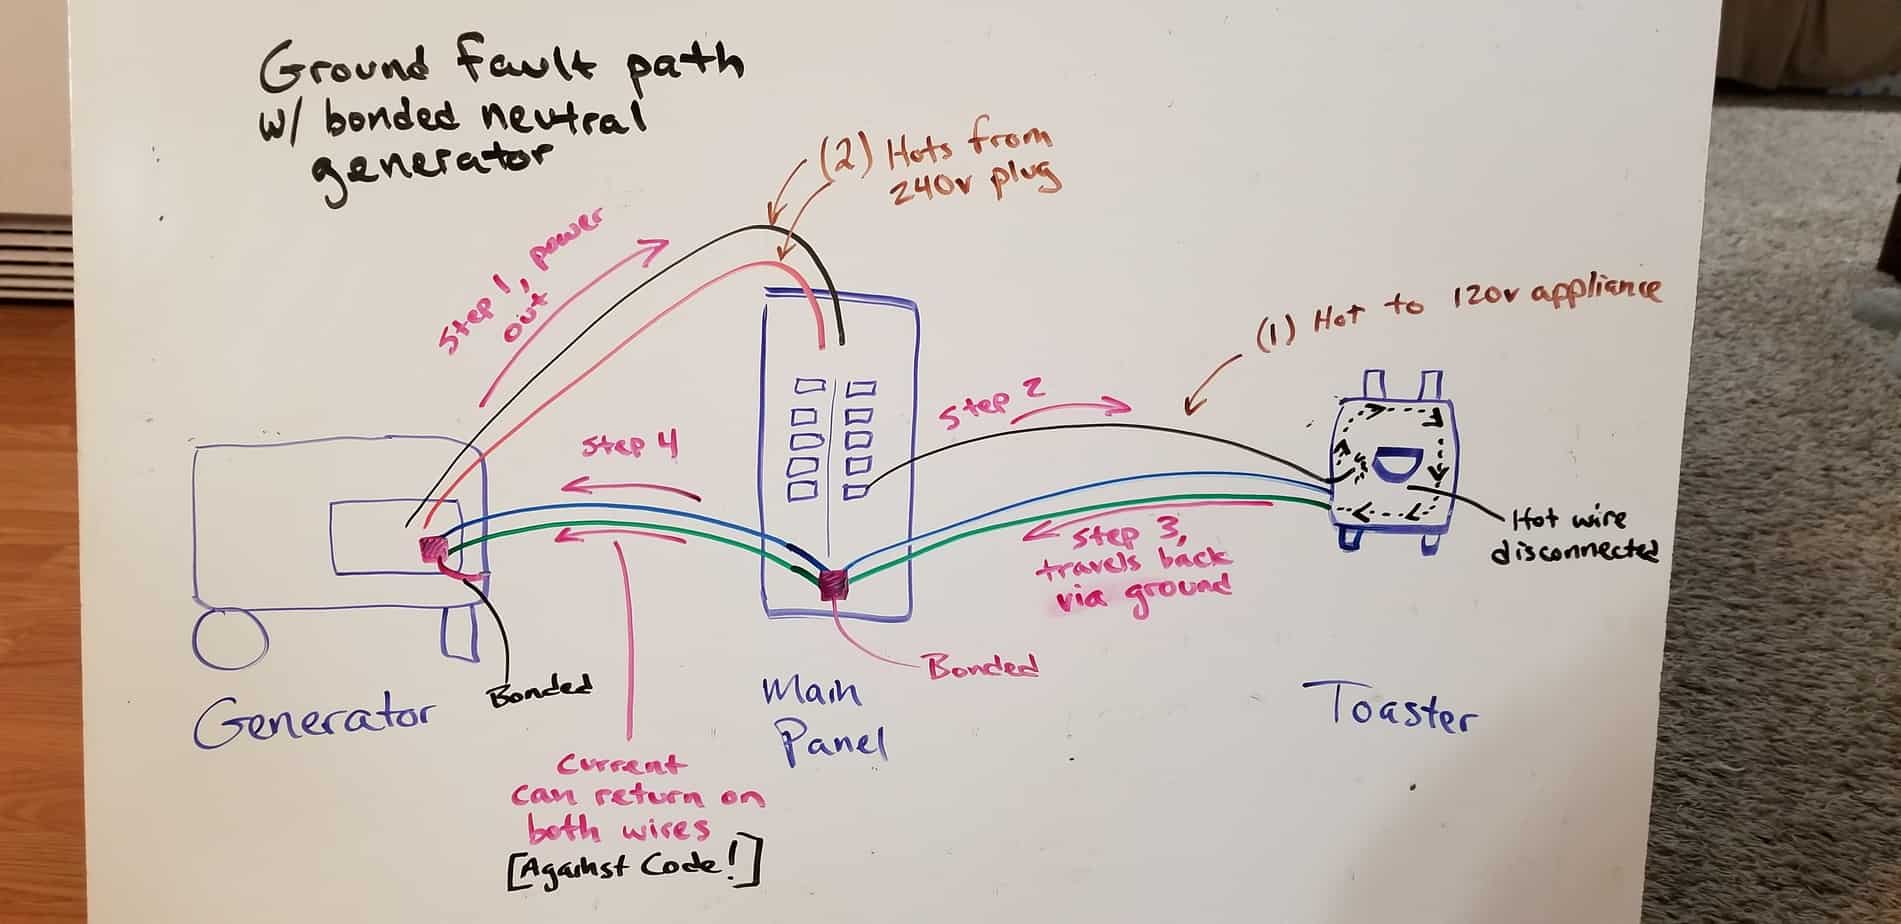 Ground fault path
w/ bonded neutral
generator
(2) Hots from
240v plug
Step 1, power
out
(1) Hot to 120v appliance
Step 2
Step 4
Step 3,
travels back
via ground
Hot wire
disconnected
Bonded
Bonded
Generator
Main
Panel
Toaster
Current
can return on
both wires
[Against Code!]